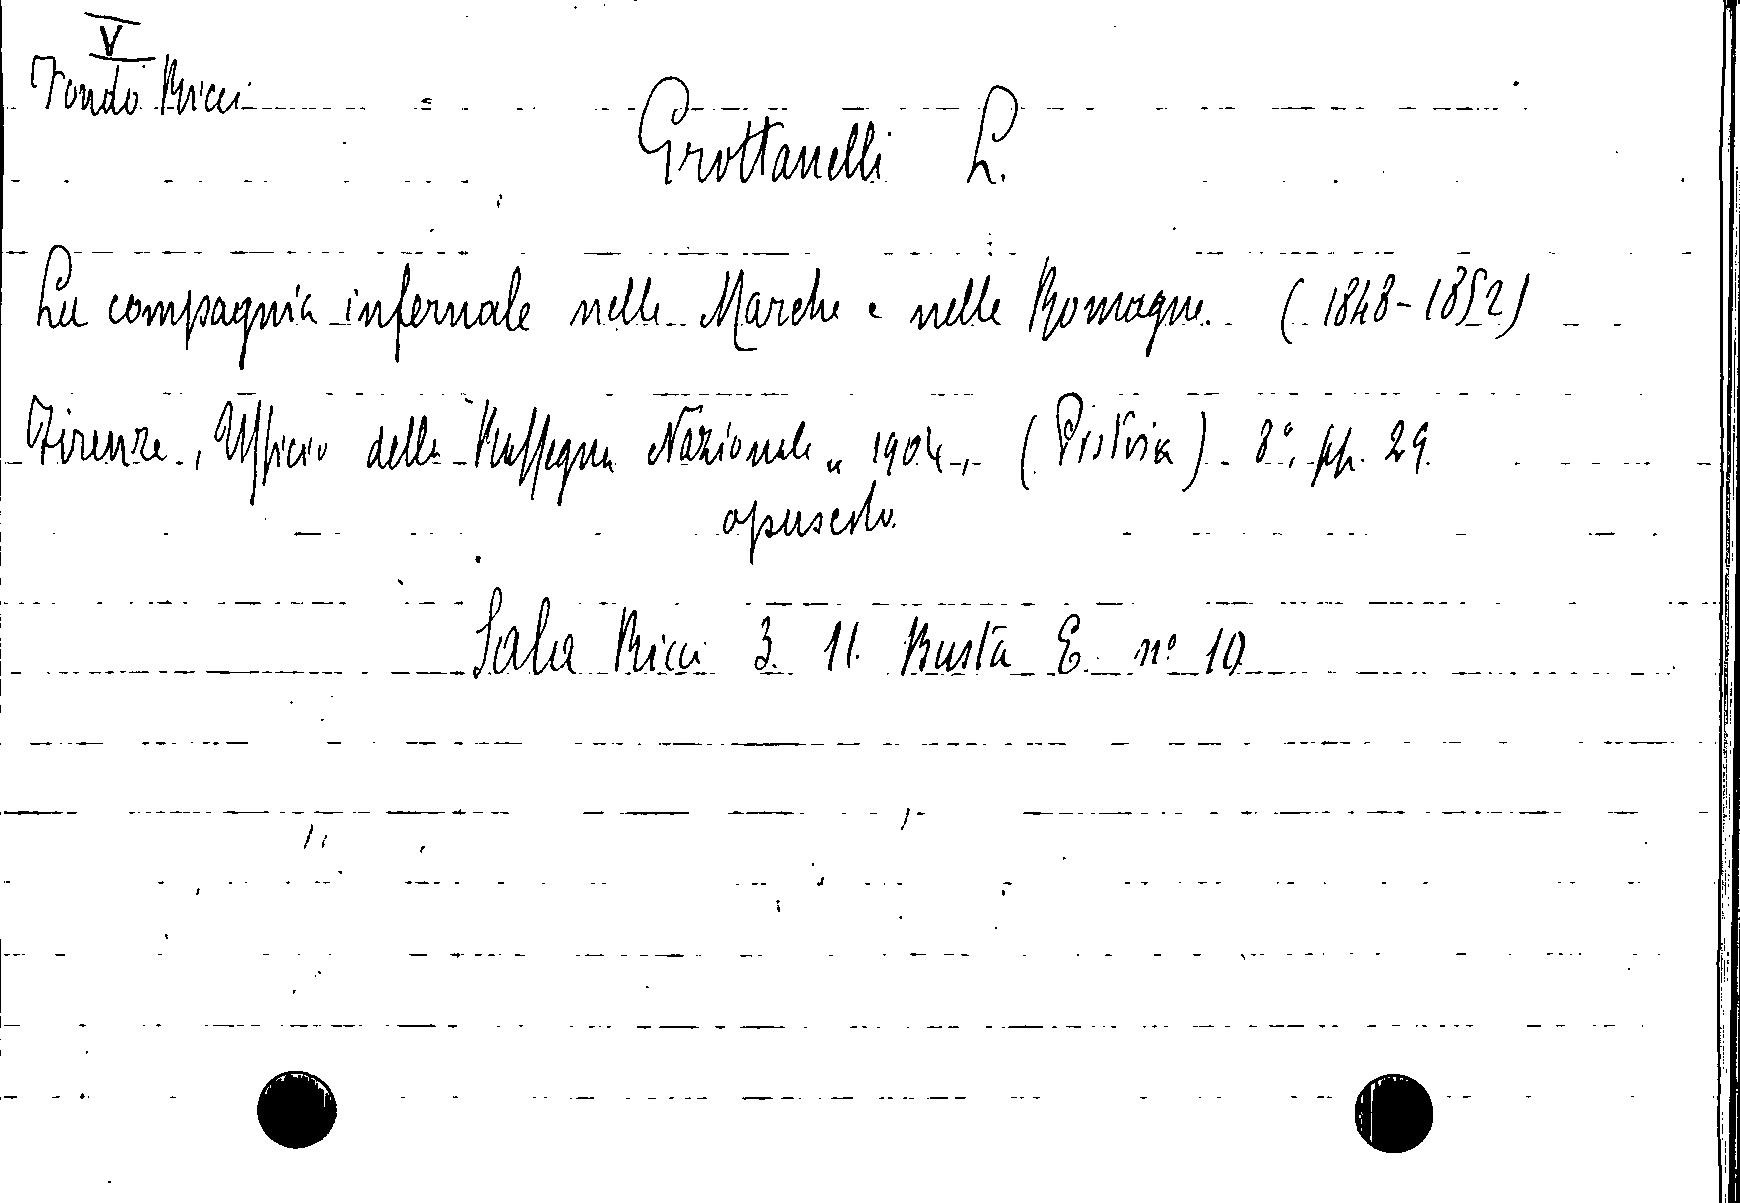 V
Fondo Ricci
Grottanelli L.
La compagnia infernale nelle Marche e nelle Romagne. (1848-1852)
Firenze, Ufficio della "Rassegna Nazionale" 1904, (Pistoia) 8°, pp. 29.
opuscolo.
Sala Ricci 3. 11. Busta E. n° 10